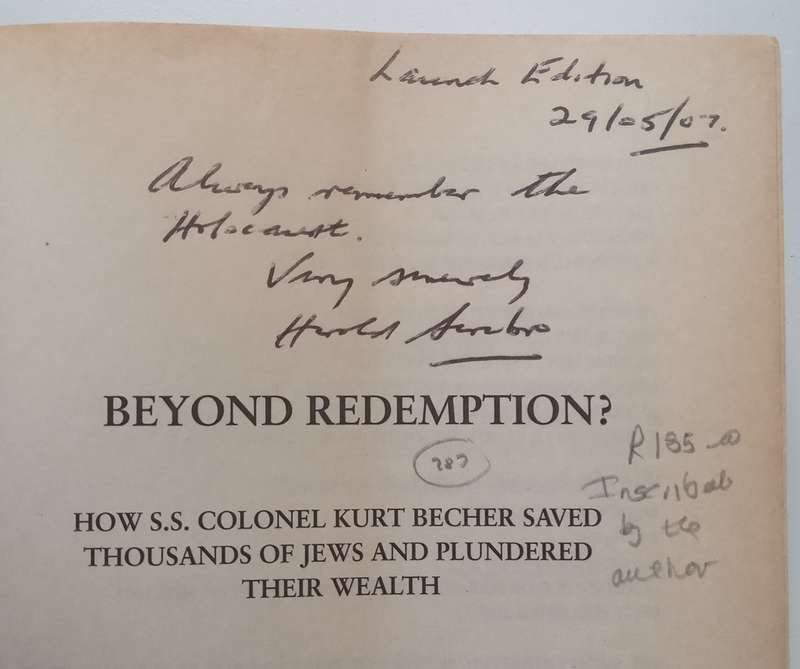 Launch Edition
29/05/07.
Always remember the
Holocaust.
Very sincerely
Harold Serebro
BEYOND REDEMPTION?
R185-00
Inscribed
by the
author
HOW S.S. COLONEL KURT BECHER SAVED
THOUSANDS OF JEWS AND PLUNDERED
THEIR WEALTH